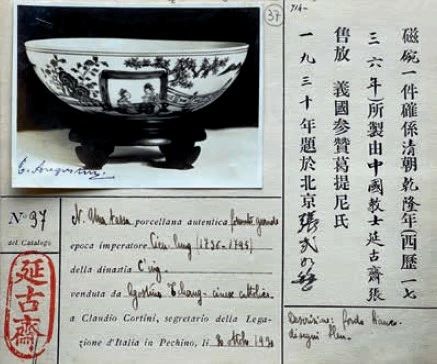 37
磁碗一件確係清朝乾隆年(西歷一七
三六年)所製由中國教士延古齋張
售放 義國參贊葛提尼氏
一九三十年題於北京張
N.° 37
del Catalogo
延古齋
N. Una tazza porcellana autentica
epoca imperatore Cien Lung (1736-1795)
della dinastia C'ing.
venduta da Agostino Tchang - cinese cattolico
a Claudio Cortini, segretario della Lega-
zione d'Italia in Pechino, li 1930
Descrizione: fondo bianco
disegni bleu.